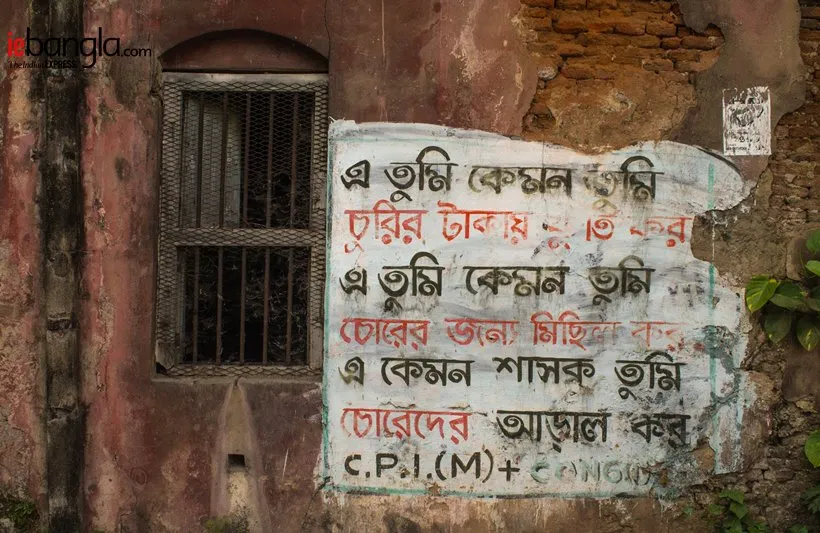 iebangla.com
The Indian EXPRESS
এ তুমি কেমন তুমি
চুরির টাকায় কর
এ তুমি কেমন তুমি
চোরের জন্যে মিছিল কর
এ কেমন শাসক তুমি
চোরেদের আড়াল কর
C.P.I.(M)+